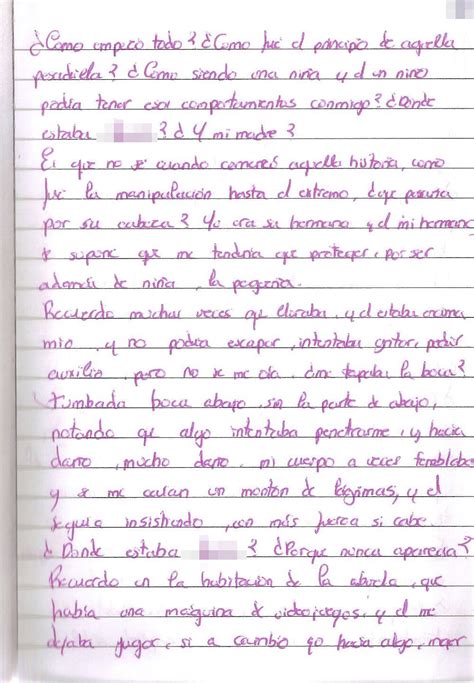 ¿Como empezo todo? ¿Como fue el principio de aquella
pesadiella? ¿Como siendo una niña y el un niño
podia tener esos comportamientos conmigo? ¿Donde
estaba ? ¿Y mi madre?
Es que no se cuando comenzó aquella historia, como
fue la manipulación hasta el extremo, ¿que pasaria
por su cabeza? Yo era su hermana y el mi hermano
se supone que me tendria que proteger, por ser
además de niña, la pequeña.
Recuerdo muchas veces que lloraba, y el estaba encima
mio, y no podia escapar, intentaba gritar, pedir
auxilio, pero no se me oía. ¿me tapaba la boca?
Tumbada boca abajo, sin la parte de abajo,
notando qe algo intentaba penetrarme, y hacia
daño, mucho daño, mi cuerpo a veces temblaba
y se me caian un monton de lágrimas, y el
seguia insistiendo, con más fuerza si cabe.
¿Donde estaba ? ¿Porque nunca aparecia?
Recuerdo en la habitación de la abuela, que
habia una maquina de videojuegos, y el me
dejaba jugar, si a cambio yo hacia algo,